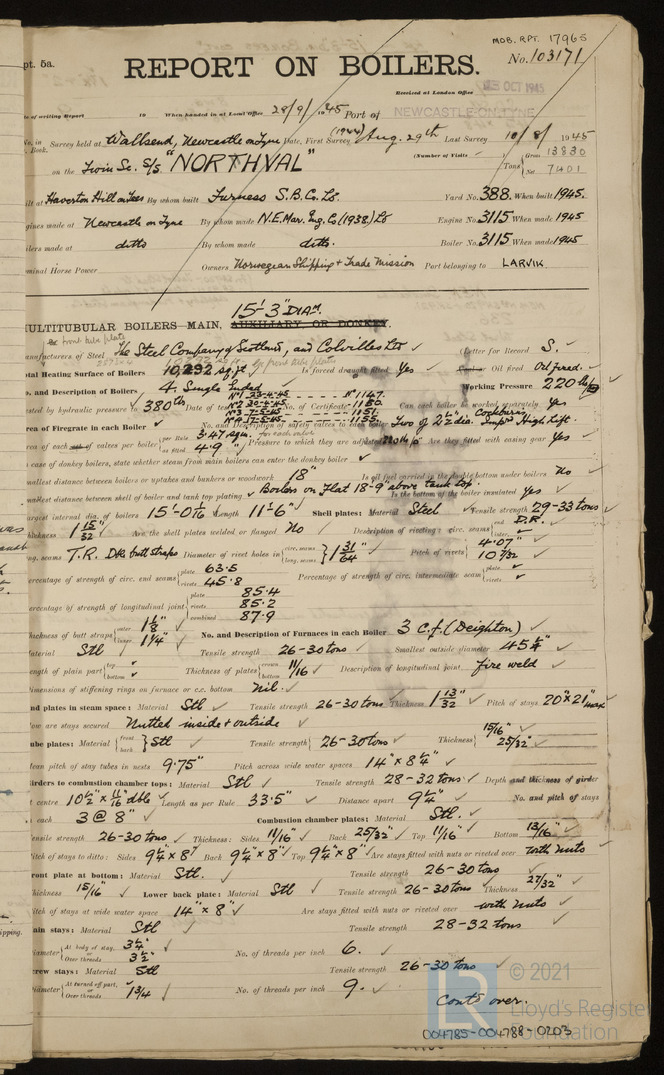 MOB. RPT. 17965
pt. 5a.
REPORT ON BOILERS.
No. 103171
Received at London Office
OCT 1945
te of writing Report 19 When handed in at Local Office 28/9/1945 Port of NEWCASTLE-ON-TYNE
No. in Survey held at Wallsend, Newcastle on Tyne Date, First Survey (1944) Aug. 29th Last Survey 10/8/1945
Book.
(Number of Visits
on the Twin Sc. S/S "NORTHVAL" Tons { Gross 13830
Net 7401
lt at Haverton Hill on Tees By whom built Furness S.B. Co. Ld. Yard No. 388. When built 1945.
gines made at Newcastle on Tyne By whom made N.E. Mar. Eng. Co (1938) Ld Engine No. 3115 When made 1945
ilers made at ditto By whom made ditto. Boiler No. 3115 When made 1945
minal Horse Power Owners Norwegian Shipping & Trade Mission Port belonging to LARVIK.
15'-3" DIAR.
ULTITUBULAR BOILERS MAIN, AUXILIARY, OR DONKEY.
ex front tube plate
anufacturers of Steel The Steel Company of Scotland, and Colvilles Ltd (Letter for Record S.
otal Heating Surface of Boilers 10,232 sq. ft. Is forced draught fitted Yes Coal or Oil fired Oil fired.
o. and Description of Boilers 4. Single Ended Working Pressure 220 lb/
No1 23-4-45 No 1147.
No2 30-4-45
No3 7-5-45 1151.
ted by hydraulic pressure to 380 lbs Date of test No. of Certificate Can each boiler be worked separately Yes
rea of Firegrate in each Boiler No. and Description of safety valves to each boiler Two of 2½ dia. Cockburns Impd High Lift.
rea of each set of valves per boiler { per Rule 3.47 sq in.
as fitted 4.9 " Pressure to which they are adjusted 220 lb Are they fitted with easing gear Yes
case of donkey boilers, state whether steam from main boilers can enter the donkey boiler
mallest distance between boilers or uptakes and bunkers or woodwork 18" Is oil fuel carried in the double bottom under boilers No
mallest distance between shell of boiler and tank top plating Boilers on Flat 18-9" above tank top. Is the bottom of the boiler insulated Yes
argest internal dia. of boilers 15'-0 1/16 Length 11'-6" Shell plates: Material Steel Tensile strength 29-33 tons
hickness 1 15/32 Are the shell plates welded or flanged No Description of riveting: circ. seams { end D.R.
inter.
ng. seams T.R. Dble butt straps Diameter of rivet holes in { circ. seams
long. seams } 1 31/64 Pitch of rivets { 4.07"
10 7/32
ercentage of strength of circ. end seams { plate 63.5
rivets 45.8 Percentage of strength of circ. intermediate seam { plate
rivets
ercentage of strength of longitudinal joint { plate 85.4
rivets 85.2
combined 87.9
hickness of butt straps { outer 1 1/8
inner 1 1/4" No. and Description of Furnaces in each Boiler 3 C.f. (Deighton)
aterial Stl Tensile strength 26-30 tons Smallest outside diameter 45 1/4"
ength of plain part { top
bottom Thickness of plates { crown
bottom 11/16 Description of longitudinal joint fire weld
imensions of stiffening rings on furnace or c.c. bottom Nil.
nd plates in steam space: Material Stl Tensile strength 26-30 tons Thickness 1 13/32 Pitch of stays 20" x 21" max
ow are stays secured Nutted inside & outside
ube plates: Material { front
back } Stl Tensile strength { 26-30 tons Thickness { 15/16"
25/32"
ean pitch of stay tubes in nests 9.75" Pitch across wide water spaces 14" x 8 1/4"
irders to combustion chamber tops: Material Stl Tensile strength 28-32 tons Depth and thickness of girder
t centre 10 1/2" x 11/16" dble Length as per Rule 33.5" Distance apart 9 1/4" No. and pitch of stays
each 3 @ 8" Combustion chamber plates: Material Stl.
ensile strength 26-30 tons Thickness: Sides 11/16" Back 25/32" Top 11/16" Bottom 13/16"
itch of stays to ditto: Sides 9 1/4" x 8" Back 9 1/4" x 8" Top 9 1/4" x 8" Are stays fitted with nuts or riveted over with nuts
ront plate at bottom: Material Stl. Tensile strength 26-30 tons
hickness 15/16" Lower back plate: Material Stl Tensile strength 26-30 tons Thickness 27/32"
itch of stays at wide water space 14" x 8" Are stays fitted with nuts or riveted over with nuts
ain stays: Material Stl Tensile strength 28-32 tons
iameter { At body of stay, 3 1/4"
or
Over threads 3 1/2" No. of threads per inch 6.
crew stays: Material Stl Tensile strength 26-30 tons
iameter { At turned off part,
or
Over threads 1 3/4 No. of threads per inch 9.
Contd over.
© 2021
Lloyd's Register
Foundation
004785-004788-0203